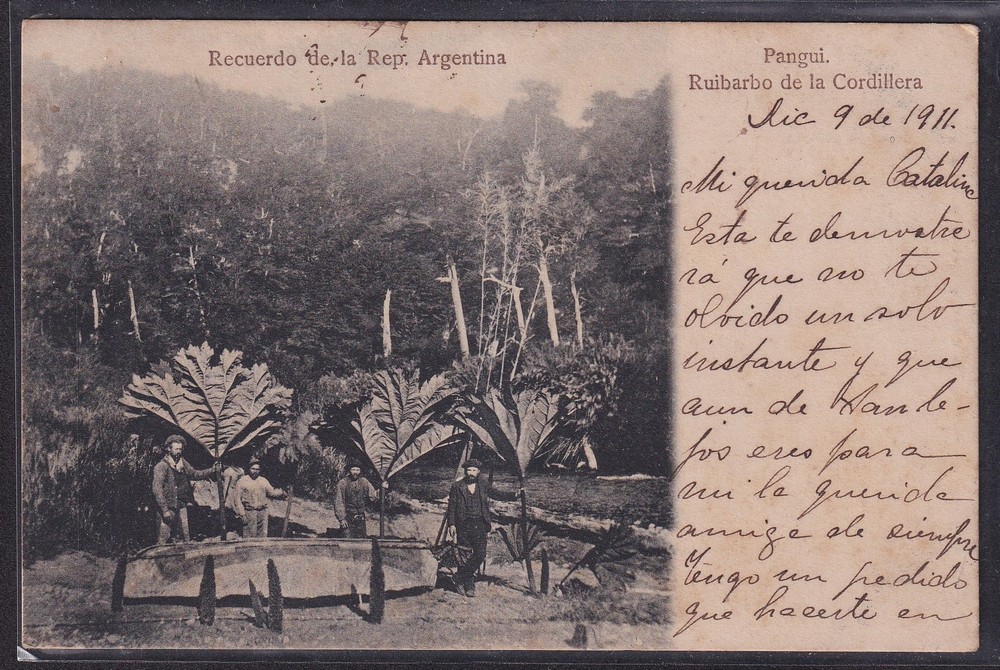 Recuerdo de la Rep. Argentina
Pangui.
Ruibarbo de la Cordillera
Dic 9 de 1911.
Mi querida Catalina
Esta te demostra
rá que no te
olvido un solo
instante y que
aun de tan le-
jos eres para
mi la querida
amiga de siempre
Tengo un pedido
que hacerte en